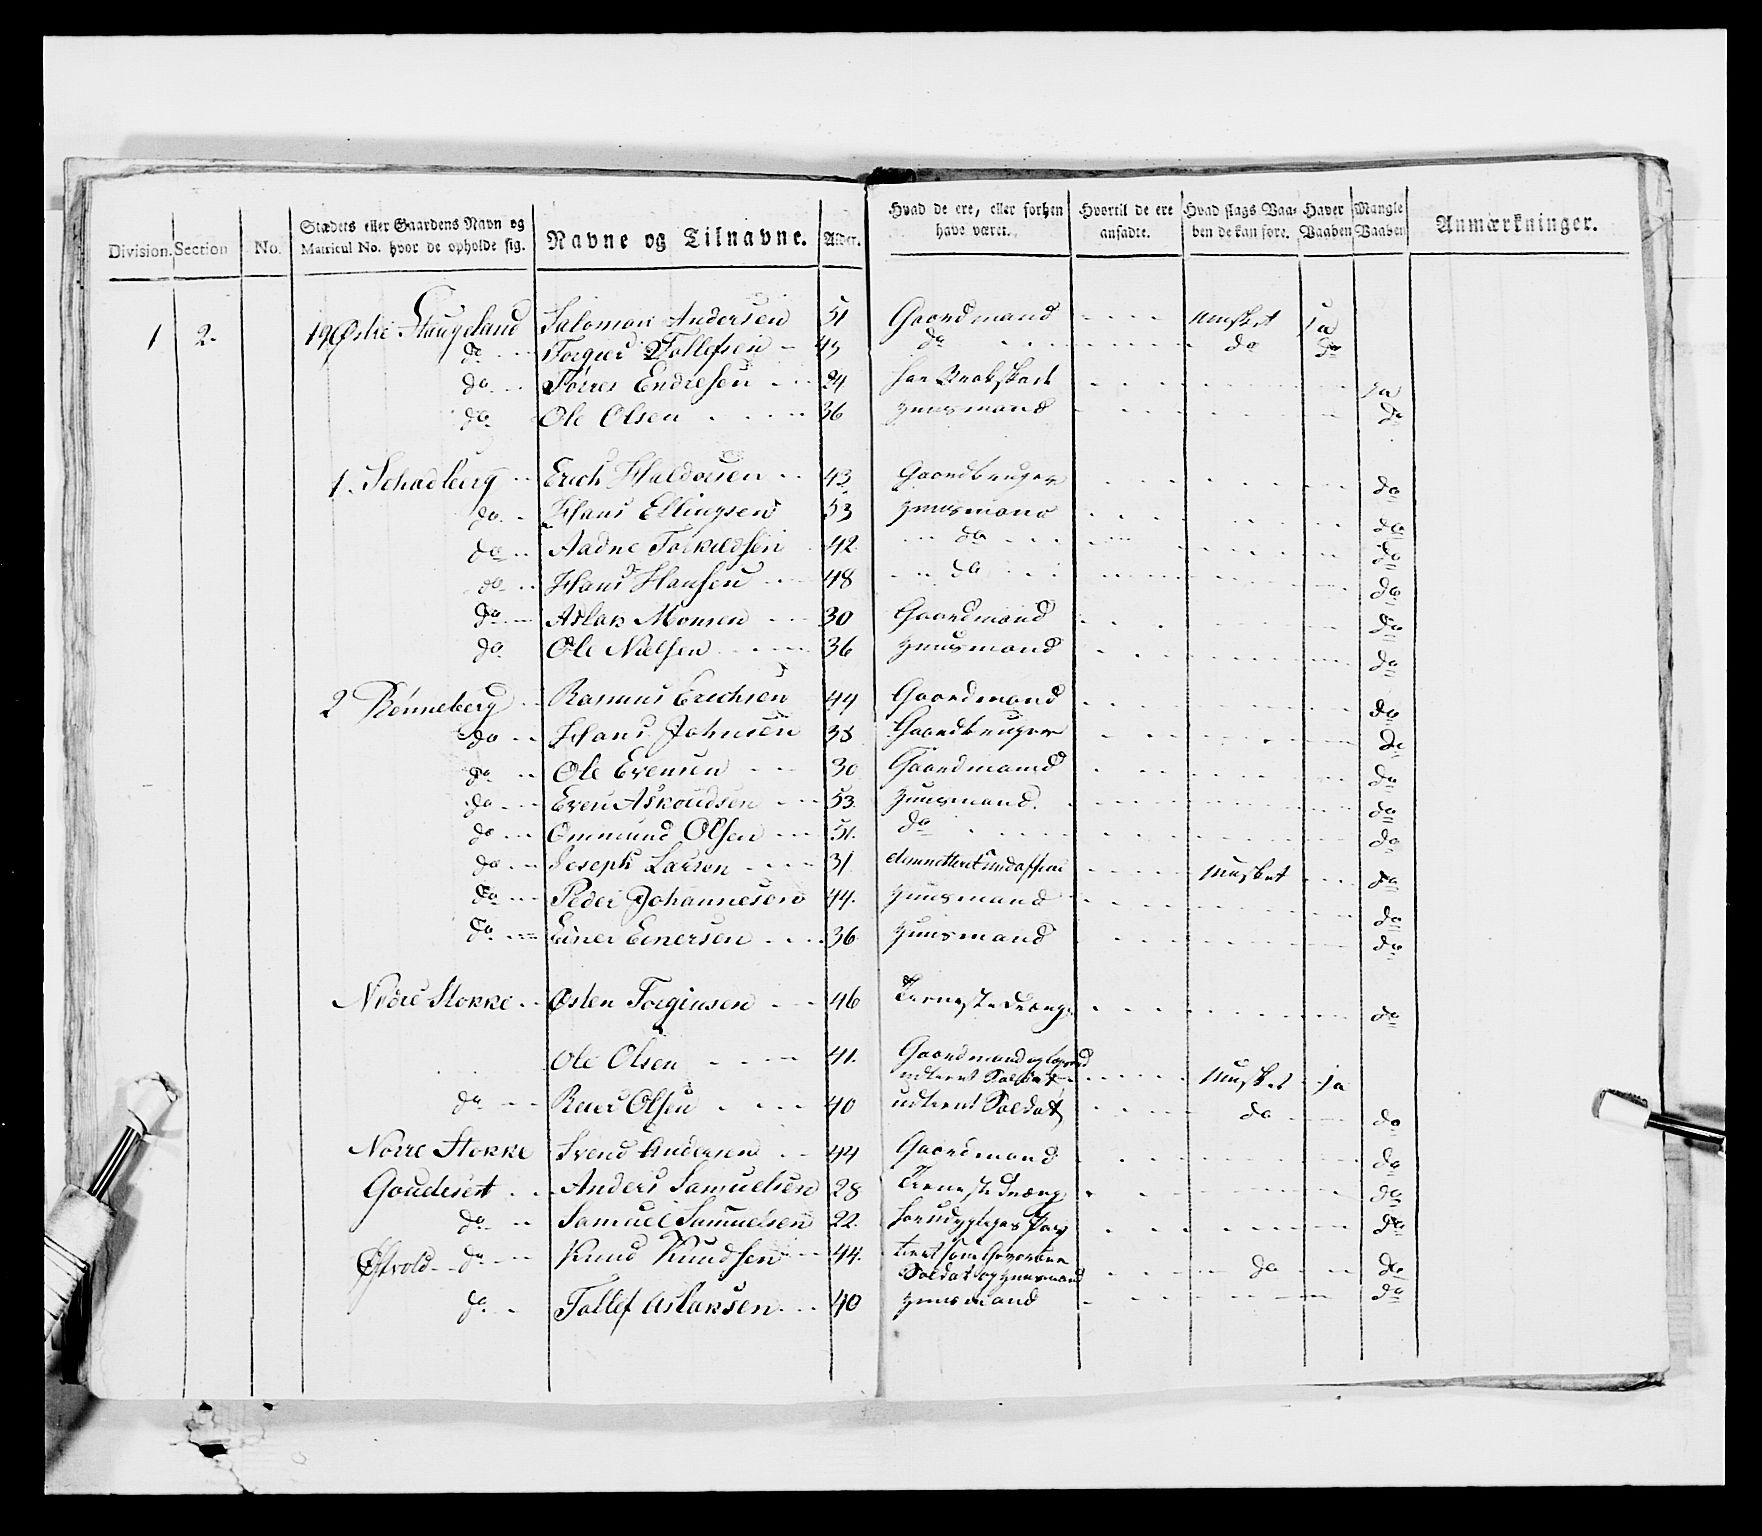 Division. Section No. Stædets eller Gaardens Navn og Matricul No. hvor de opholde sig. Navne og Tilnavne. Alder. Hvad de ere, eller forhen have været. Hvortil de ere ansadte. Hvad slags Vaaben de kan føre. Haver Vaaben Mangle Vaaben Anmærkninger.
1 2. 19 Østre Stangeland Salomon Andersen 51 Gaardmand musket ja
do Torger Tollefsen 43 do do do
do Torres Endresen 24 ja
do Ole Olsen 36 Huusmand do
1. Schadberg Erich Haldorsen 43 Gaardbruger do
do Hans Ellingsen 53 Huusmand do
do Aadne Torkildsen 42 do do
do Hans Hansen 48 do do
do Aslak Monsen 30 Gaardmand do
do Ole Nielsen 36 Huusmand do
2 Rønneberg Rasmus Erichsen 44 Gaardmand do
do Hans Johnsen 38 Gaardbruger do
do Ole Evensen 30 Gaardmand do
do Even Askoudsen 53. Huusmand. do
do Ommund Olsen 51. do do
do Joseph Larsen 31 musket do
do Peder Johannesen 44. Huusmand do
do Einer Einersen 36 Huusmand do
Nedre Stokke Østen Torginsen 46 Tienestedreng do
Ole Olsen 41. Gaardmand og
udtient Soldat musket ja
do Reier Olsen 40 udtient Soldat do do
Norre Stokke Svend Andersen 44 Gaardmand do
Goudeset Anders Samuelsen 28 Tienestedreng do
do Samuel Samuelsen 22. do
do Knud Knudsen 44. tient som
Soldat og Huusmand do do
do Tollef Aslaksen 40 Huusmand do